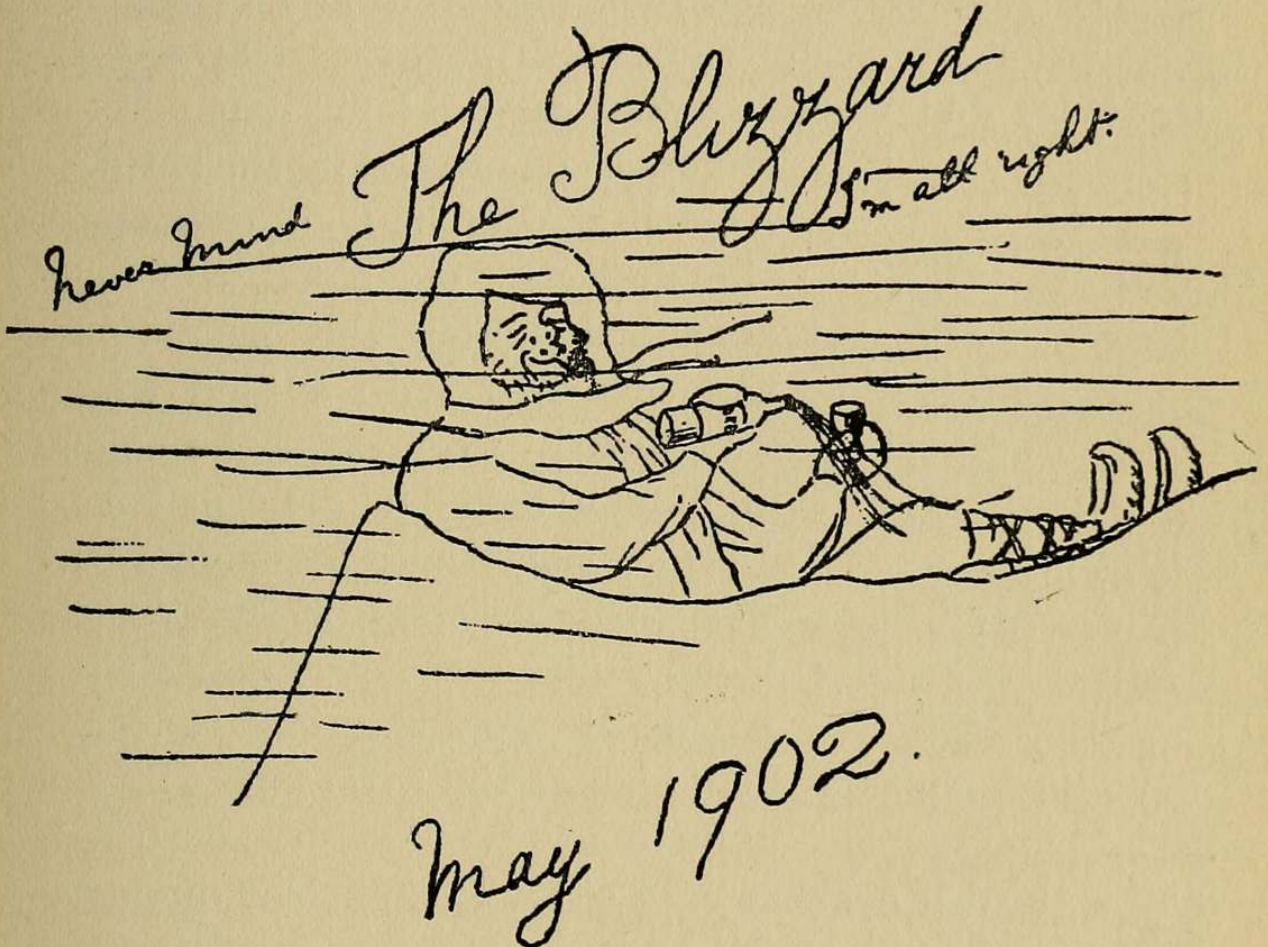 never mind The Blizzard
I'm all right.
May 1902.